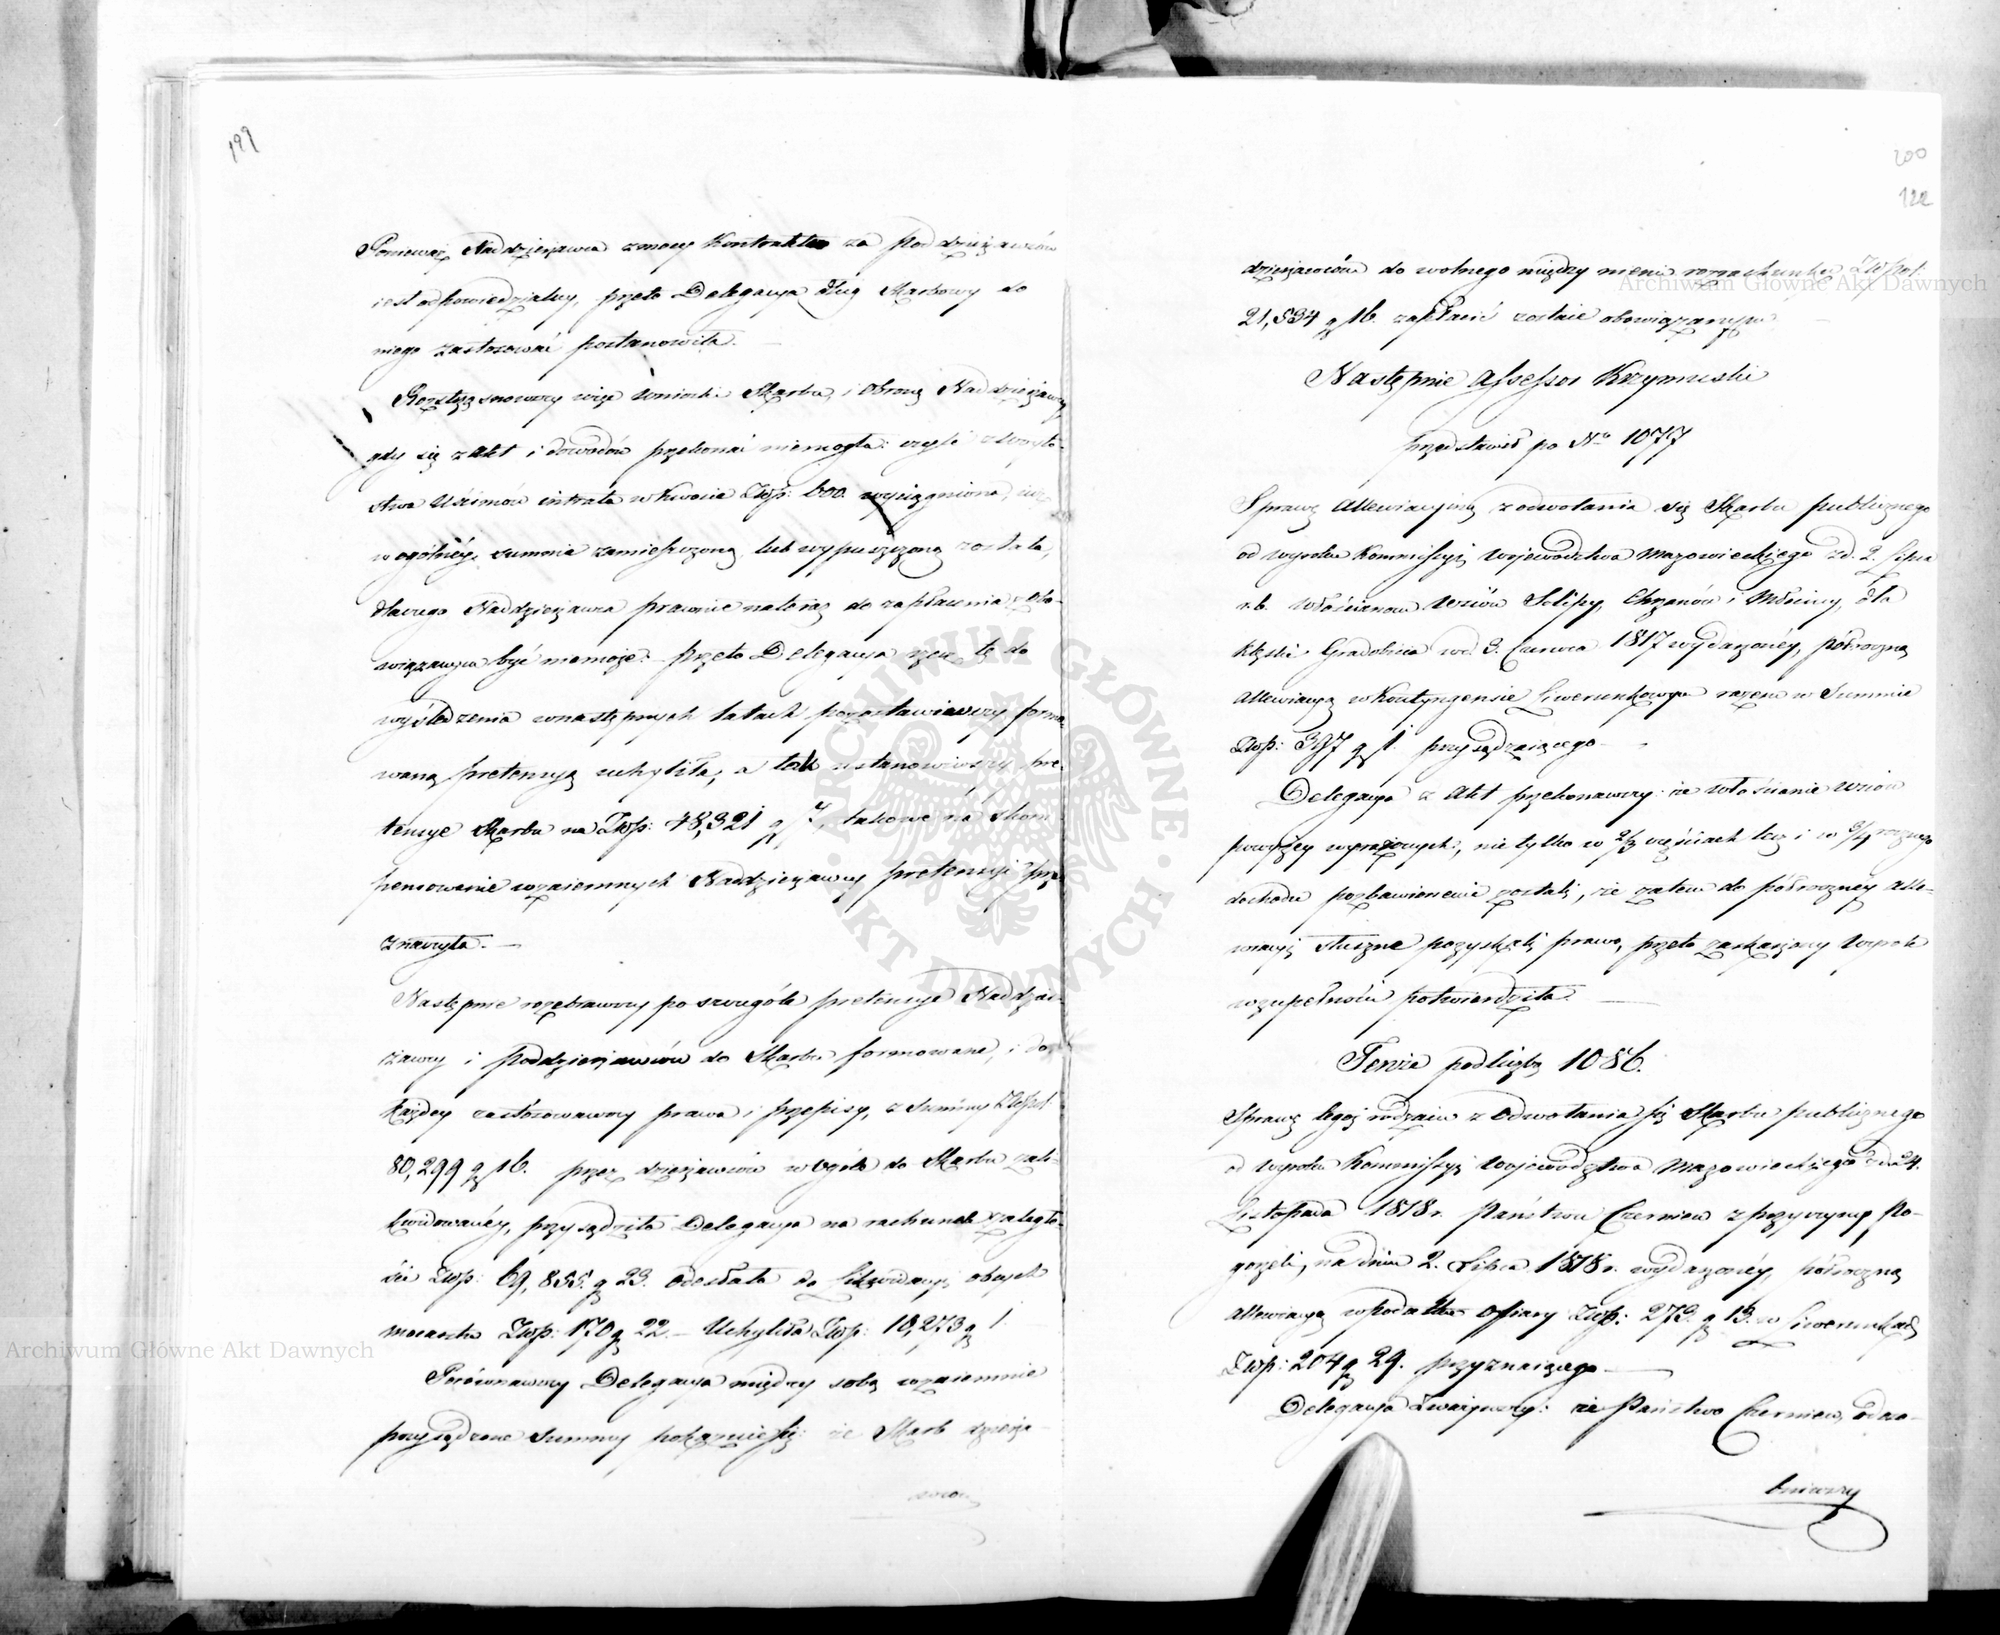 199
Ponieważ Naddzierżawca z mocy Kontraktu za Poddzierżawców
iest odpowiedzialny, przeto Delegacya dług Skarbowy do
niego zastosować postanowiła. —
Roztrząsnąwszy więc wnioski Skarbu i obronę Naddzierżawcy
gdy się z Akt i dowodów przekonać niemogła: czyli z wójto-
stwa Uścimów intrata w kwocie Złp: 600. wyciągniona, iuż
w ogólnéy summie zamieszczoną lub wypuszczoną została,
dlaczego Naddzierżawca prawnie na teraz do zapłacenia zobo-
wiązanym być niemoże. przeto Delegacya rzecz tę do
wyśledzenia w następnych latach pozostawiwszy formo-
waną pretensyą uchyliła, a tak ustanowiwszy pre-
tensye Skarbu na Złp: 48,321 g 7, takowe na skom-
pensowanie wzaiemnych Naddzierżawcy pretensyi prze-
znaczyła. —
Następnie rozebrawszy po szczególe pretensye Naddzier-
żawcy i Poddzierżawców do Skarbu formowane, i do
każdey zastosowawszy prawa i przepisy, z Summy Złpol
80,299 g 16. przez dzierżawców w ogóle do Skarbu zali-
kwidowanéy, przysądziła Delegacya na rachunek zaległo-
ści Złp: 69,855. g 23. odesłała do Likwidacyi obcych
mocarstw Złp: 170 g 22. — Uchyliła Złp: 10,273 g 1.
Porównawszy Delegacya między sobą wzaiemnie
przysądzone Summy pokazuie się: że Skarb dzierża-
wcom
200
122
dzierżawców do wolnego między niemi rozrachunku Złpol:
21,534 g 16. zapłacić zostaie obowiązanym —
Następnie Assessor Krzymuski
przedstawił po No 1077
Sprawę Allewiacyiną z odwołania się Skarbu publicznego
od wyroku Kommissyi Województwa Mazowieckiego z d. 2. Lipca
r. b. włościanom wsiów Solipsy, Chrzanów i Młociny, dla
klęski Gradobicia w d. 3. Czerwca 1817 wydarzonéy, półroczną
Allewiacyą w Kontyngensie Liwerunkowym razem w Summie
Złp: 397 g 1. przysądzaiącego. —
Delegacya z Akt przekonawszy: że włościanie wsiów
powyżey wyrażonych, nie tylko w 2/3 częściach lecz i w 3/4 rocznego
dochodu pozbawionemi zostali, że zatem do półroczney Alle-
wiacyi słuszne pozyskali prawo, przeto zaskarżony wyrok
w zupełności potwierdziła. —
Tenże pod liczbą 1086.
Sprawę tegoż rodzaiu z odwołania się Skarbu publicznego
od wyroku Kommissyi Województwa Mazowieckiego z dnia 24.
Listopada 1818 r. Państwu Czerniew z przyczyny Po-
gorzeli, na dniu 2. Lipca 1818 r. wydarzonéy, półroczną
Allewiacyą w podatku Ofiary Złp: 273. g 13. w Liwerunkach
Złp: 204 g 29. przyznaiącego —
Delegacya zważywszy: że Państwo Czerniew, odro-
biwszy
Archiwum Główne Akt Dawnych
Archiwum Główne Akt Dawnych
ARCHIWUM GŁÓWNE · AKT DAWNYCH ·